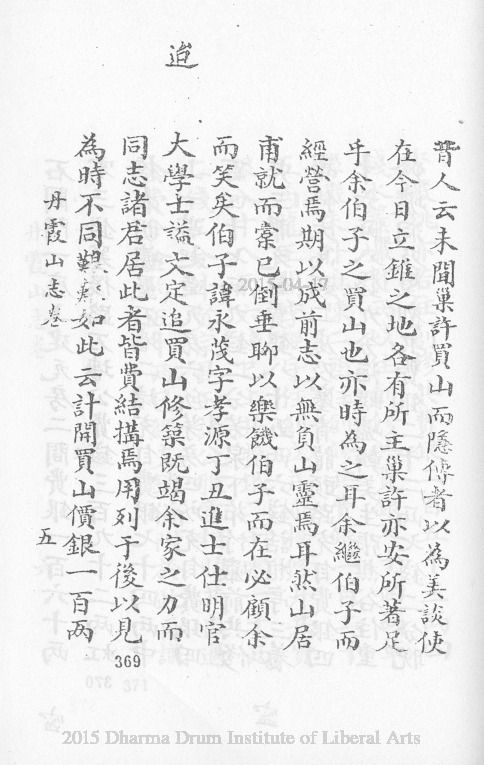 昔人云未聞巢許買山而隱傳者以為美談使
在今日立錐之地各有所主巢許亦安所著足
乎余伯子之買山也亦時為之耳余繼伯子而
經營焉期以成前志以無負山靈焉耳然山居
甫就而橐已倒垂聊以樂饑伯子而在必顧余
而笑矣伯子諱永茂字孝源丁丑進士仕明官
大學士謚文定追買山修築既竭余家之力而
同志諸君居此者皆費結搆焉用列于後以見
為時不同艱難如此云計開買山價銀一百兩
丹霞山志卷 五
369
371
2015-04-17
2015 Dharma Drum Institute of Liberal Arts